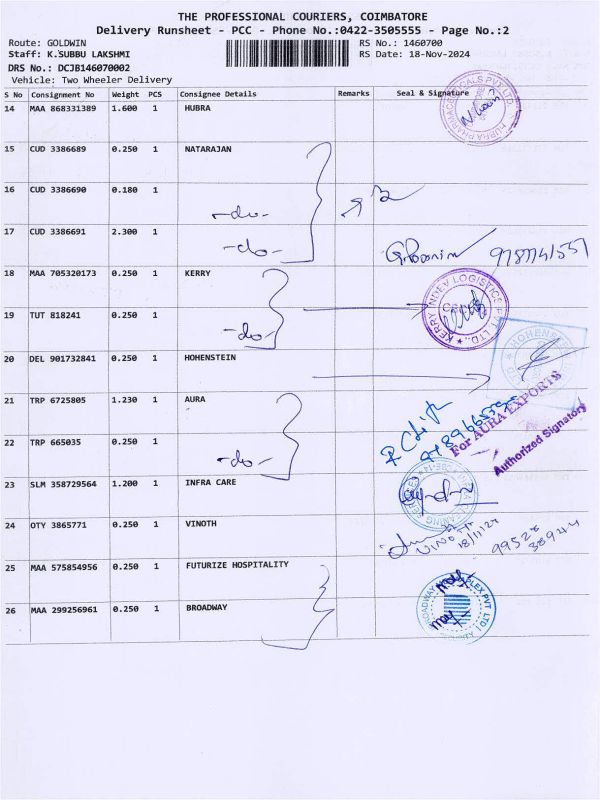 THE PROFESSIONAL COURIERS, COIMBATORE
Delivery Runsheet - PCC - Phone No.:0422-3505555 - Page No.:2
Route: GOLDWIN
RS No.: 1460700
Staff: K.SUBBU LAKSHMI
RS Date: 18-Nov-2024
DRS No.: DCJB146070002
Vehicle: Two Wheeler Delivery
S No Consignment No Weight PCS Consignee Details Remarks Seal & Signature
14 MAA 868331389 1.600 1 HUBRA
HUBRA PHARMACEUTICALS PVT. LTD.
15 CUD 3386689 0.250 1 NATARAJAN
16 CUD 3386690 0.180 1
-do-
17 CUD 3386691 2.300 1
-do-
18 MAA 705320173 0.250 1 KERRY
KERRY INDEV LOGISTICS PVT. LTD.,
19 TUT 818241 0.250 1
-do-
20 DEL 901732841 0.250 1 HOHENSTEIN
HOHENSTEIN
21 TRP 6725805 1.230 1 AURA
For AURA EXPORTS
Authorized Signatory
22 TRP 665035 0.250 1
-do-
23 SLM 358729564 1.200 1 INFRA CARE
24 OTY 3865771 0.250 1 VINOTH
VINOTH
18/11/24
99528
38944
25 MAA 575854956 0.250 1 FUTURIZE HOSPITALITY
26 MAA 299256961 0.250 1 BROADWAY
BROADWAY
PLEX PVT LTD